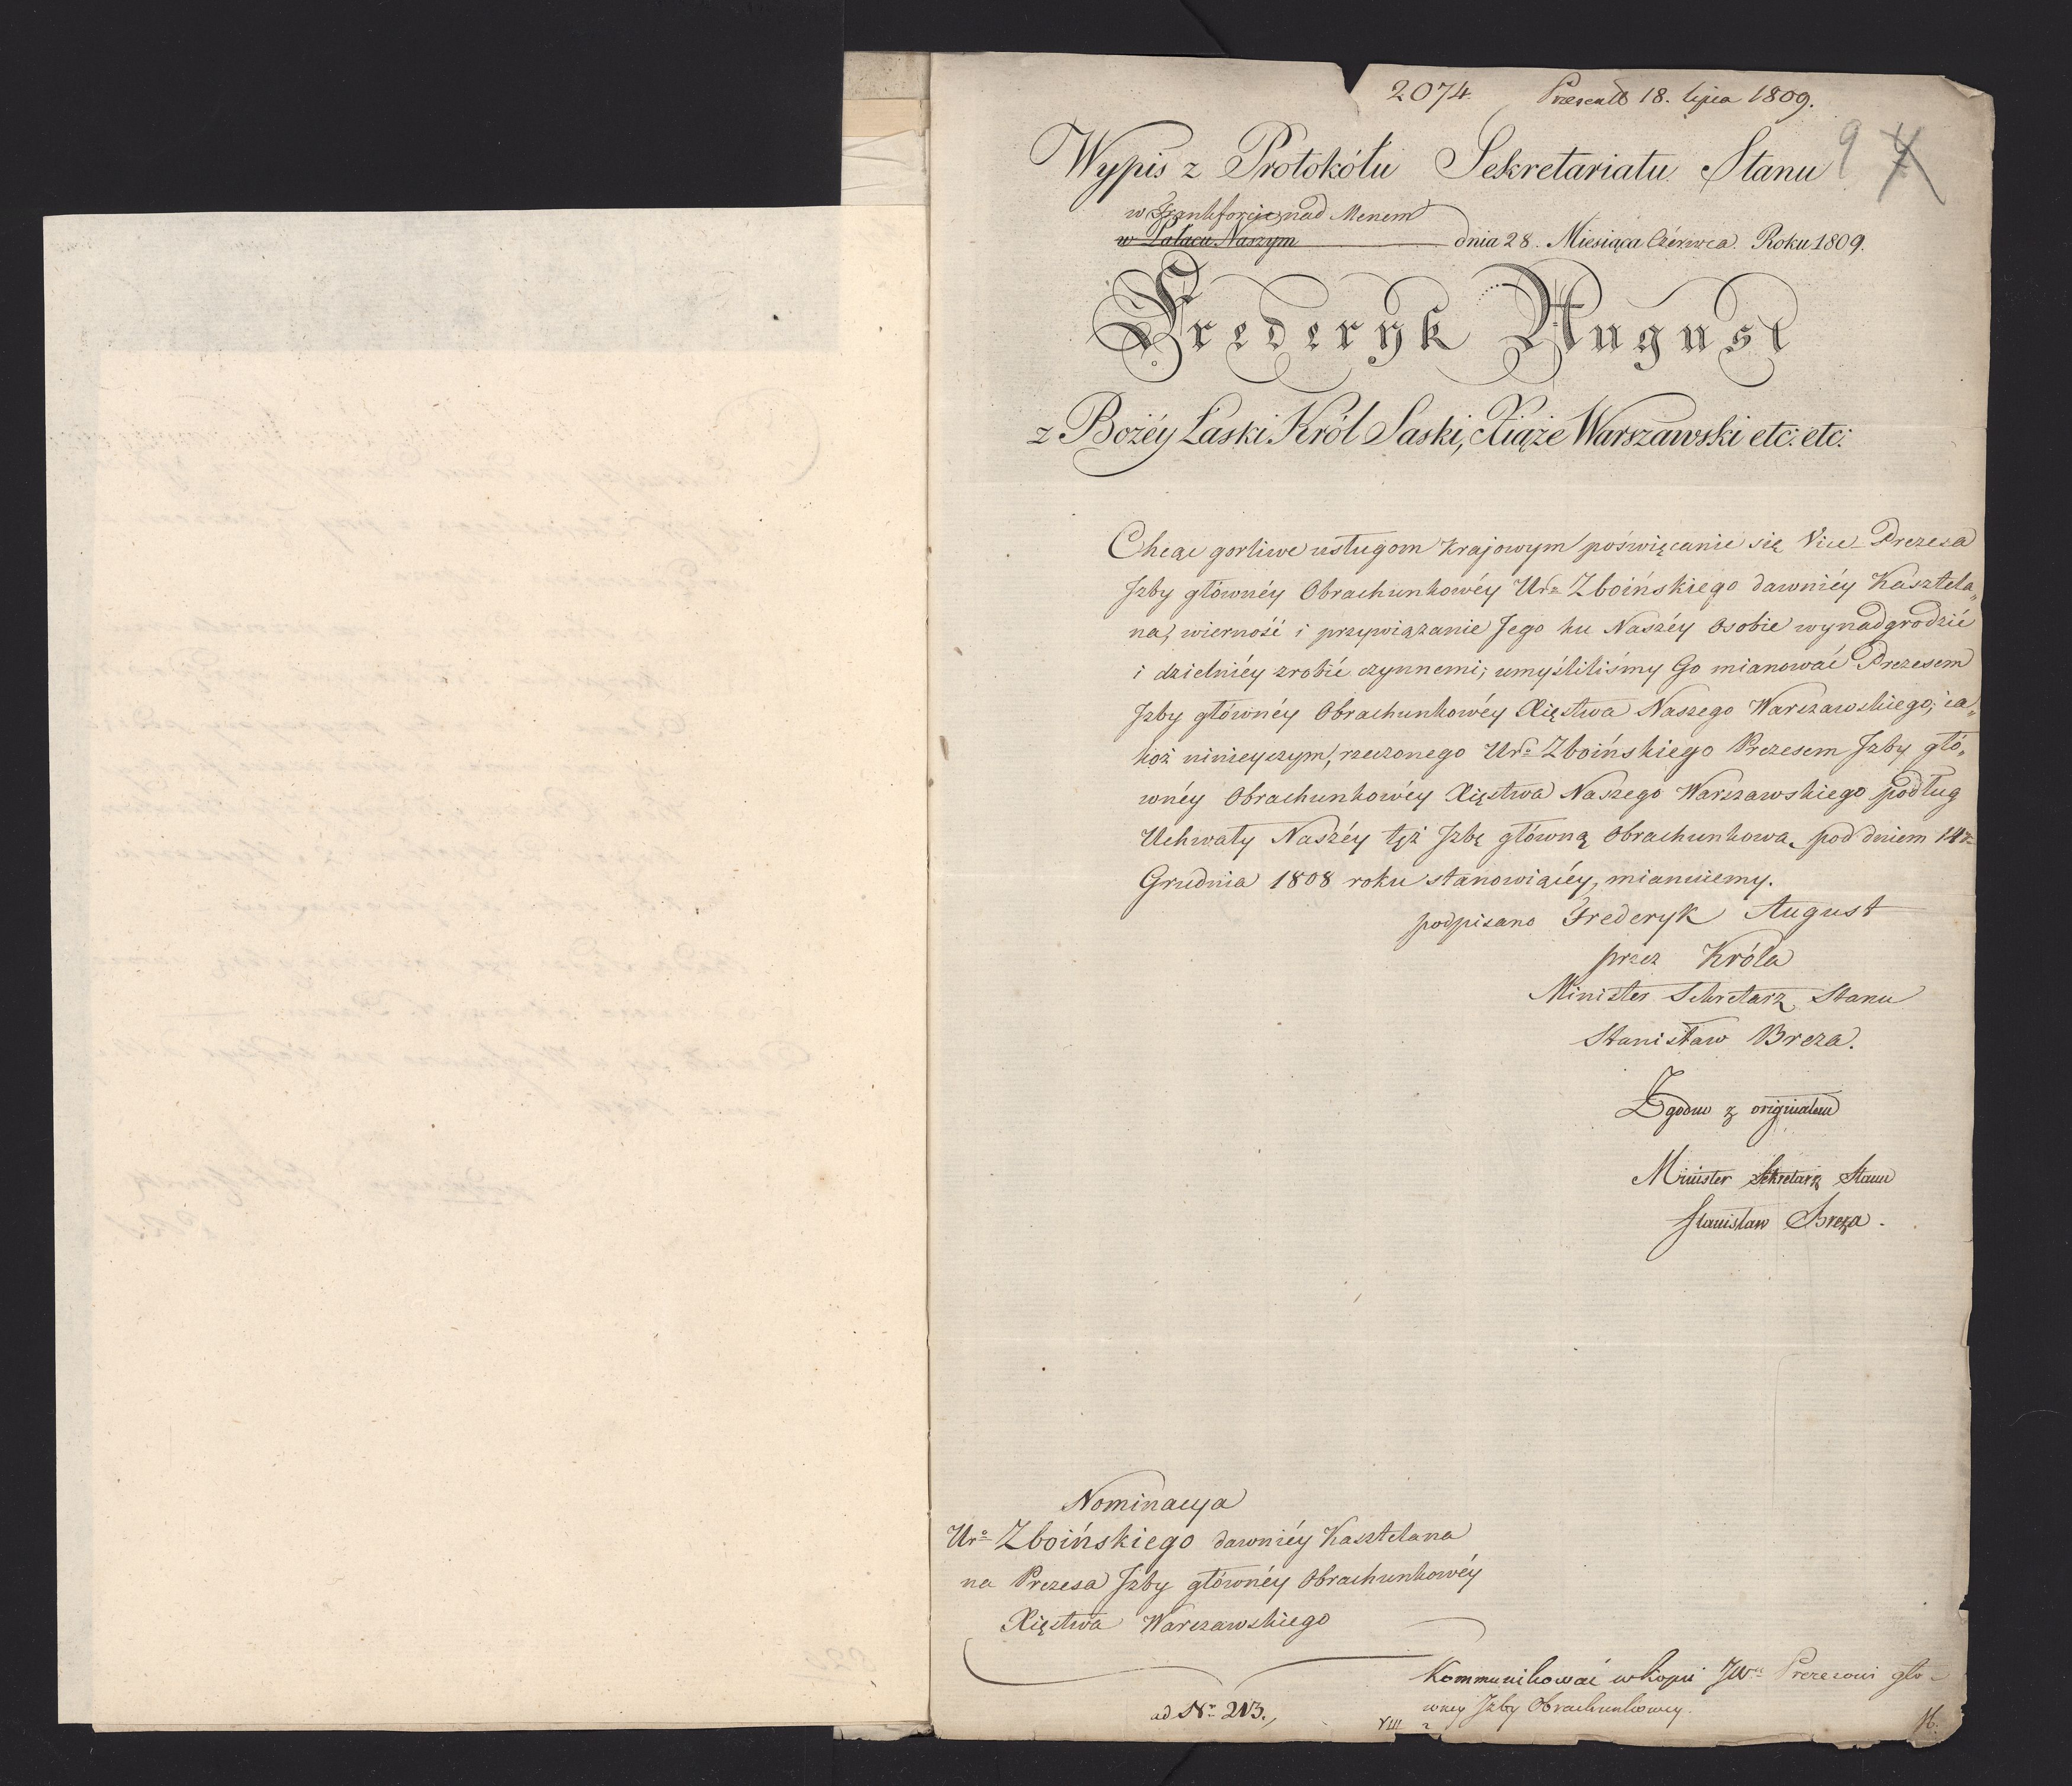 2074 Presentt 18. lipca 1809.
Wypis z Protokółu Sekretariatu Stanu 9 4
w Frankforcie nad Menem
w Pałacu Naszym dnia 28. Miesiąca Czérwca Roku 1809.
Frederyk August
z Bożéy Łaski Król Saski, Xiąże Warszawski etc: etc:
Chcąc gorliwe usługom krajowym poświęcanie się Vice-Prezesa
Jzby głównéy Obrachunkowéy Urº Zboińskiego dawniéy Kasztela„
na, wierność i przywiązanie Jego ku Naszéy Osobie wynadgrodzić
i dzielniéy zrobić czynnemi; umyśliliśmy Go mianować Prezesem
Jzby głównéy Obrachunkowéy Xięstwa Naszego Warszawskiego; ia„
koż ninieyszym, rzeczonego Urº Zboińskiego Prezesem Jzby głó„
wnéy Obrachunkowéy Xięstwa Naszego Warszawskiego podług
Uchwały Naszéy tęż Jzbę główną Obrachunkową pod dniem 14º
Grudnia 1808 roku stanowiącéy, mianuiemy.
podpisano Frederyk August
przez Króla
Minister Sekretarz Stanu
Stanisław Breza.
Zgodno z originałem
Minister Sekretarz Stanu
Stanisław Breza.
Nominacya
Urº Zboińskiego dawniéy Kasztelana
na Prezesa Jzby głównéy Obrachunkowéy
Xięstwa Warszawskiego
Kommunikować w kopii JWu Prezesowi głó-
wney Jzby Obrachunkowey.
ad Nr 213.,
VIII 2 16.